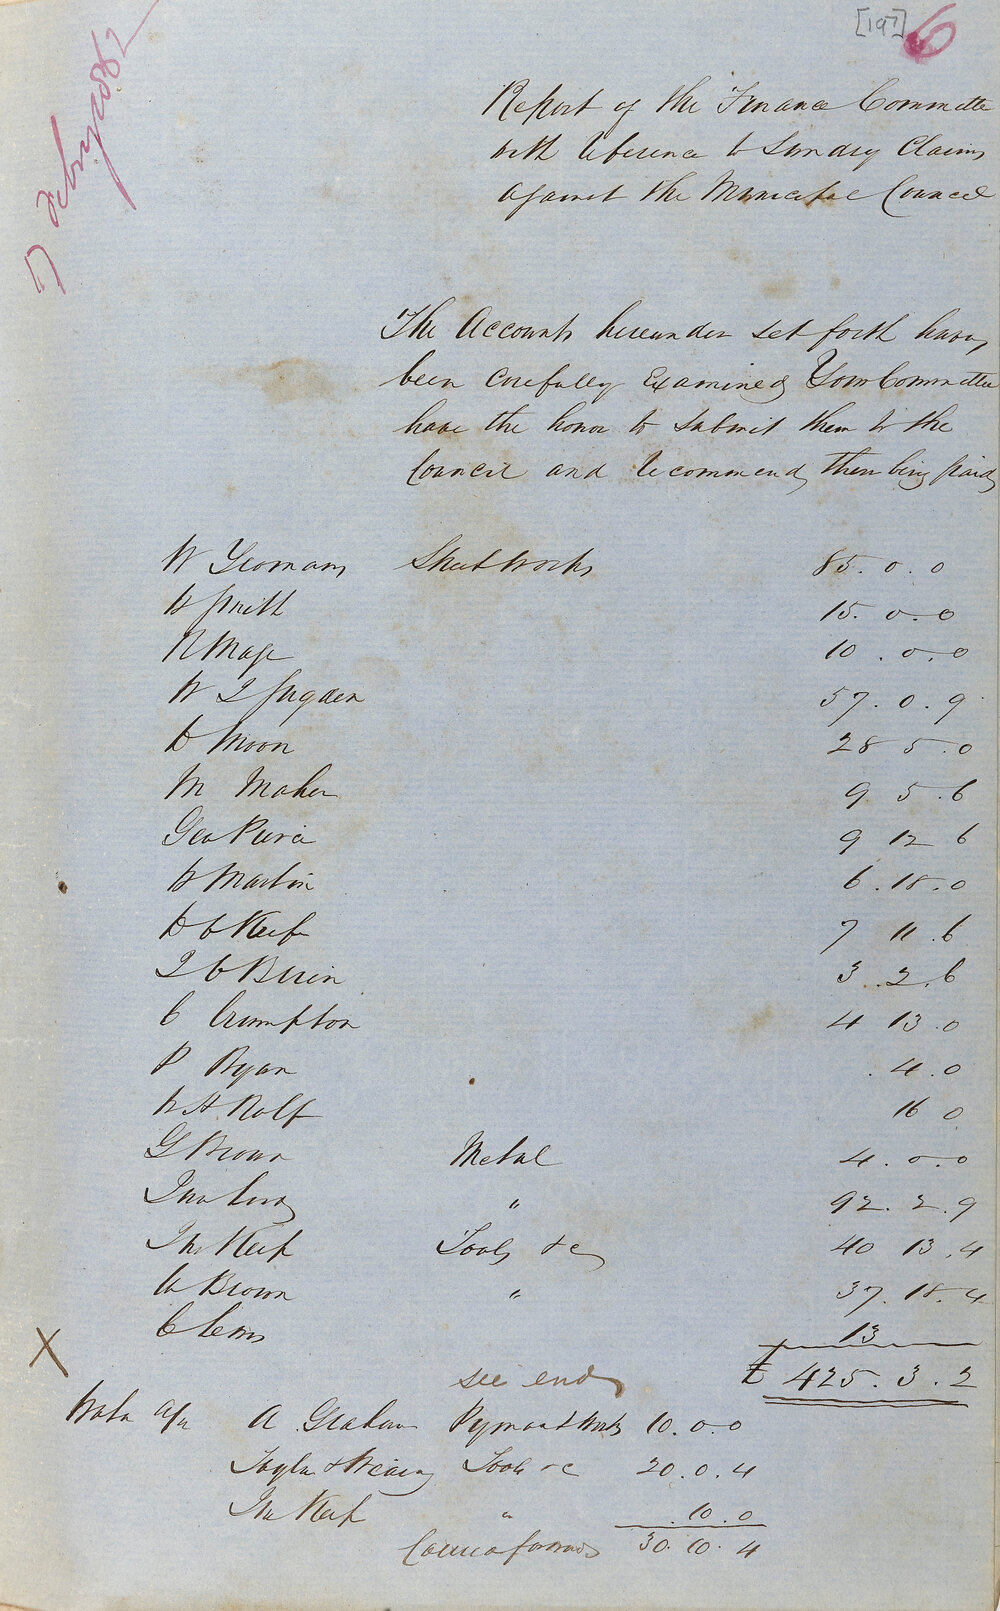 [197] 6
17 Feby 1862
Report of the Finance Committee
with reference to Sundry Claims
against the Municipal Council
The Accounts hereunder set forth having
been carefully Examined Your Committee
have the honor to submit them to the
Council and recommend their being paid
W Yeomans Street Works 85. 0. 0
W Smith 15. 0. 0
R Mage 10. 0. 0
W J Sugden 57. 0. 9
D Moon 28 5. 0
M Maher 9 5. 6
Geo Peirce 9 12 6
W Martin 6. 18. 0
D O Keefe 7 11. 6
J O Brien 3. 2. 6
C Crumpton 4 13. 0
P Ryan . 4. 0
W H Rolf 16 0
G Brown Metal 4. 0. 0
Jno " 92. 2. 9
Jno Keep Tools &c 40 13. 4
W Brown " 37. 18. 4
C Lewis 13
see end £ 425. 3. 2
X
Water a/c A Graham Pyrmont Works 10. 0. 0
Taylor & Wearing Tools &c 20. 0. 4
Jno Keep " . 10. 0
Carried forward 30. 10. 4